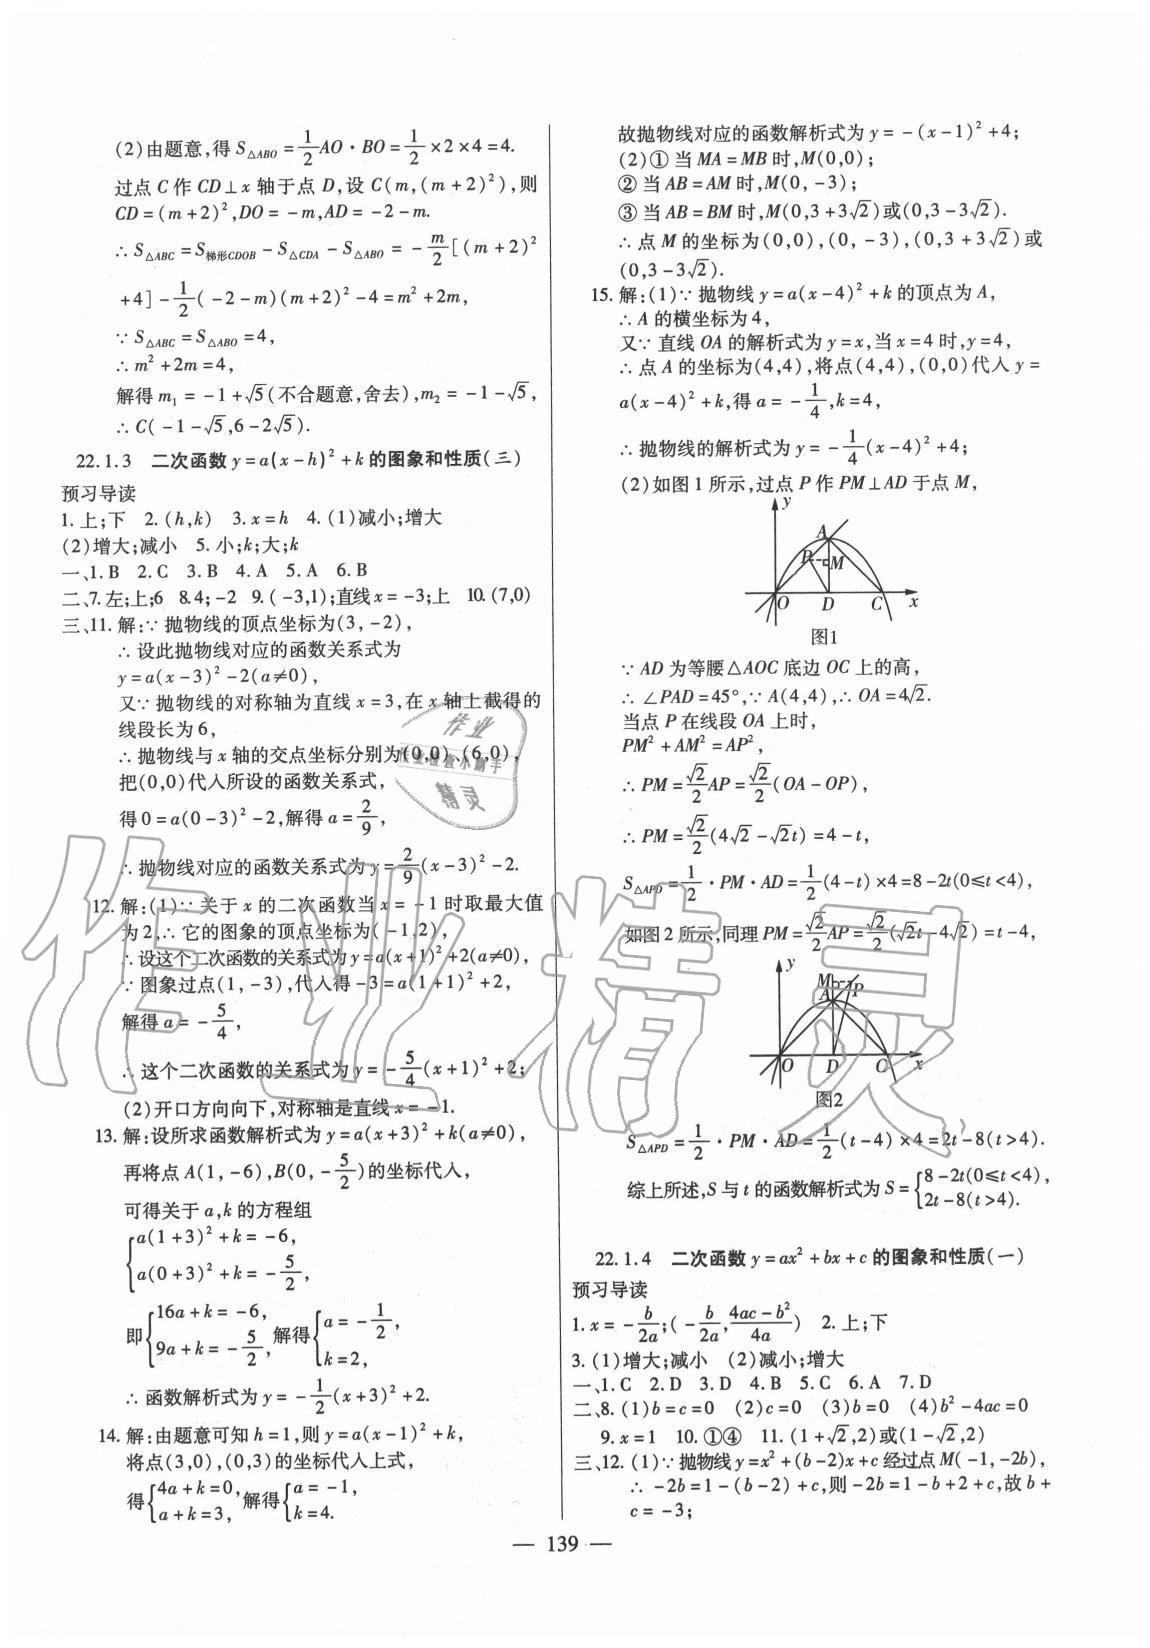 (2)由题意,得 S△ABO = 1/2 AO·BO = 1/2 ×2×4=4.
过点 C 作 CD⊥x 轴于点 D,设 C(m,(m+2)²),则
CD=(m+2)²,DO=-m,AD=-2-m.
∴ S△ABC = S梯形CDOB - S△CDA - S△ABO = - m/2 [(m+2)²
+4] - 1/2 (-2-m)(m+2)² -4=m²+2m,
∵ S△ABC = S△ABO = 4,
∴ m²+2m=4,
解得 m₁=-1+√5(不合题意,舍去),m₂=-1-√5,
∴ C(-1-√5,6-2√5).
22.1.3 二次函数 y=a(x-h)²+k 的图象和性质(三)
预习导读
1. 上;下 2. (h,k) 3. x=h 4. (1)减小;增大
(2)增大;减小 5. 小;k;大;k
一、1. B 2. C 3. B 4. A 5. A 6. B
二、7. 左;上;6 8. 4;-2 9. (-3,1);直线 x=-3;上 10. (7,0)
三、11. 解:∵ 抛物线的顶点坐标为(3,-2),
∴ 设此抛物线对应的函数关系式为
y=a(x-3)²-2(a≠0),
又∵ 抛物线的对称轴为直线 x=3,在 x 轴上截得的
线段长为 6,
∴ 抛物线与 x 轴的交点坐标分别为(0,0)、(6,0),
把(0,0)代入所设的函数关系式,
得 0=a(0-3)²-2,解得 a= 2/9,
∴ 抛物线对应的函数关系式为 y= 2/9 (x-3)²-2.
12. 解:(1)∵ 关于 x 的二次函数当 x=-1 时取最大值
为 2,∴ 它的图象的顶点坐标为(-1,2),
∴设这个二次函数的关系式为 y=a(x+1)²+2(a≠0),
∵ 图象过点(1,-3),代入得-3=a(1+1)²+2,
解得 a=- 5/4,
∴ 这个二次函数的关系式为 y=- 5/4 (x+1)²+2;
(2)开口方向向下,对称轴是直线 x=-1.
13. 解:设所求函数解析式为 y=a(x+3)²+k(a≠0),
再将点 A(1,-6),B(0,- 5/2)的坐标代入,
可得关于 a,k 的方程组
{a(1+3)²+k=-6,
a(0+3)²+k=- 5/2,
即{16a+k=-6, 9a+k=- 5/2, 解得{a=- 1/2, k=2,
∴ 函数解析式为 y=- 1/2 (x+3)²+2.
14. 解:由题意可知 h=1,则 y=a(x-1)²+k,
将点(3,0),(0,3)的坐标代入上式,
得{4a+k=0, a+k=3, 解得{a=-1, k=4.
故抛物线对应的函数解析式为 y=-(x-1)²+4;
(2)① 当 MA=MB 时,M(0,0);
② 当 AB=AM 时,M(0,-3);
③ 当 AB=BM 时,M(0,3+3√2)或(0,3-3√2).
∴ 点 M 的坐标为(0,0),(0,-3),(0,3+3√2)或
(0,3-3√2).
15. 解:(1)∵ 抛物线 y=a(x-4)²+k 的顶点为 A,
∴ A 的横坐标为 4,
又∵ 直线 OA 的解析式为 y=x,当 x=4 时,y=4,
∴ 点 A 的坐标为(4,4),将点(4,4),(0,0)代入 y=
a(x-4)²+k,得 a=- 1/4,k=4,
∴ 抛物线的解析式为 y=- 1/4 (x-4)²+4;
(2)如图 1 所示,过点 P 作 PM⊥AD 于点 M,
y
A
P M
O D C x
图1
∵ AD 为等腰△AOC 底边 OC 上的高,
∴ ∠PAD=45°,∵ A(4,4),∴ OA=4√2.
当点 P 在线段 OA 上时,
PM²+AM²=AP²,
∴ PM= √2/2 AP= √2/2 (OA-OP),
∴ PM= √2/2 (4√2-√2t)=4-t,
S△APD = 1/2 ·PM·AD= 1/2 (4-t)×4=8-2t(0≤t<4),
如图 2 所示,同理 PM= √2/2 AP= √2/2 (√2t-4√2)=t-4,
y
M P
A
O D C x
图2
S△APD = 1/2 ·PM·AD= 1/2 (t-4)×4=2t-8(t>4).
综上所述,S 与 t 的函数解析式为 S={8-2t(0≤t<4), 2t-8(t>4).
22.1.4 二次函数 y=ax²+bx+c 的图象和性质(一)
预习导读
1. x=- b/2a;(- b/2a, (4ac-b²)/4a) 2. 上;下
3. (1)增大;减小 (2)减小;增大
一、1. C 2. D 3. D 4. B 5. C 6. A 7. D
二、8. (1)b=c=0 (2)c=0 (3)b=0 (4)b²-4ac=0
9. x=1 10. ①④ 11. (1+√2,2)或(1-√2,2)
三、12. (1)∵抛物线 y=x²+(b-2)x+c 经过点 M(-1,-2b),
∴ -2b=1-(b-2)+c,则-2b=1-b+2+c,故 b+
c=-3;
— 139 —
作业精灵
作业
作业检查小助手
精灵